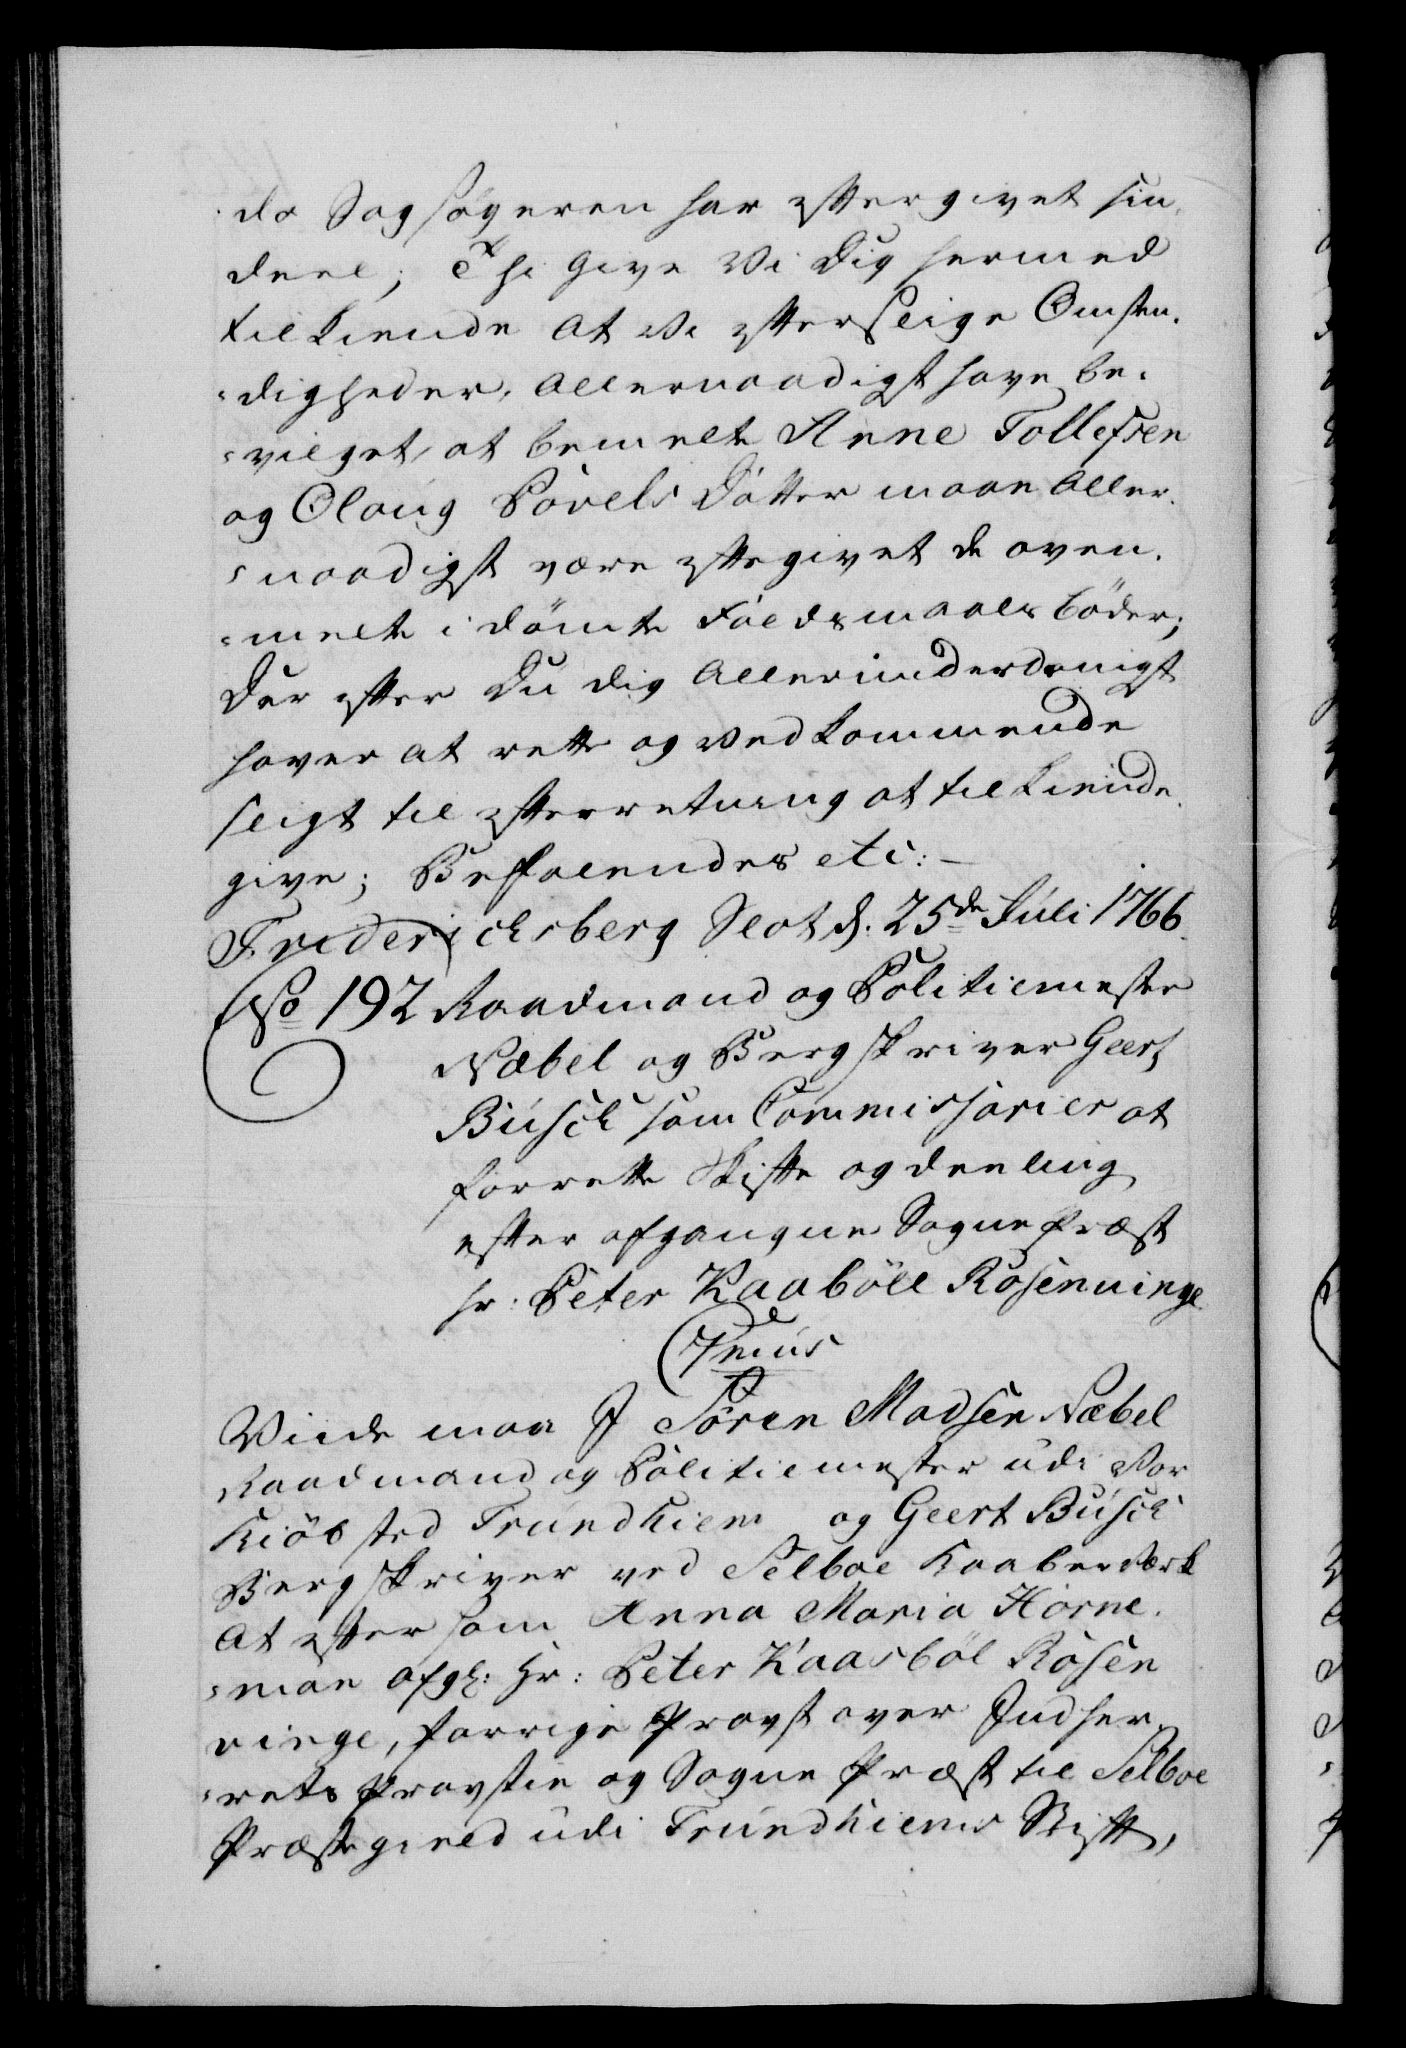 da Sagsøgeren har eftergivet sin
deel; Thi give Vi Dig hermed
tilkiende at Vi efter slige Omsten-
=digheder, allernaadigst have be-
=vilget, at bemelte Anne Tollefsen
og Olaug Povels Datter maae aller-
=naadigst være eftergivet de oven-
=melte idømte Leiermaals bøder;
Der efter Du dig allerunderdanigst
haver at rette og vedkommende
sligt til efterretning at tilkiende-
give; Befalendes etc: –
Friderichsberg Slot d. 25de Juli 1766.
No 192 Raadmand og Politiemester
Næbel og Bergskriver Geert
Busch som Commissarier at
forrette Skifte og deeling
efter afgangne Sogne Præst
hr: Peter Kaabøll Rosenvinge
7mus
Vide maa I Søren Madsen Næbel
Raadmand og Politiemester udi Vor
Kiøbsted Trundhiem og Geert Busch
Bergskriver ved Selboe Kaaberværk
At eftersom Anna Maria Horne-
=man afg: Hr: Peter Kaasbøl Rosen
vinge, forrige Provst over Indher-
=rets Provstie og Sogne Præst til Selboe
Præstegield udi Trundhiems Stift,